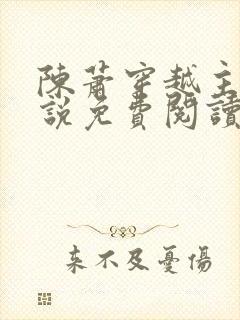 陳蕭穿越主
說免費閱讀
来不及憂傷